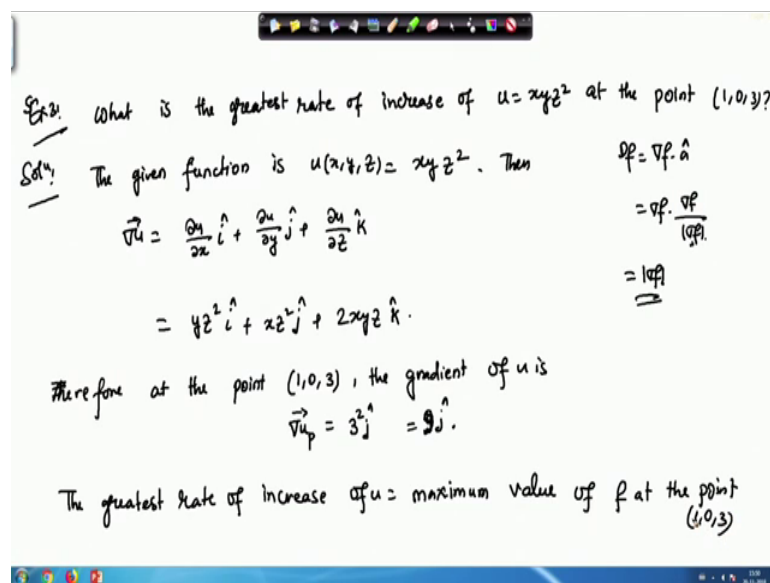 Ex 3: What is the greatest rate of increase of u = xyz² at the point (1,0,3)?
Solⁿ: The given function is u(x,y,z) = xyz². Then
∇u⃗ = ∂u/∂x î + ∂u/∂y ĵ + ∂u/∂z k̂
= yz² î + xz² ĵ + 2xyz k̂.
Df = ∇f · â
= ∇f · ∇f/|∇f|.
= |∇f|
Therefore at the point (1,0,3), the gradient of u is
∇u⃗ₚ = 3² ĵ = 9ĵ.
The greatest rate of increase of u = maximum value of f at the point
(1,0,3)